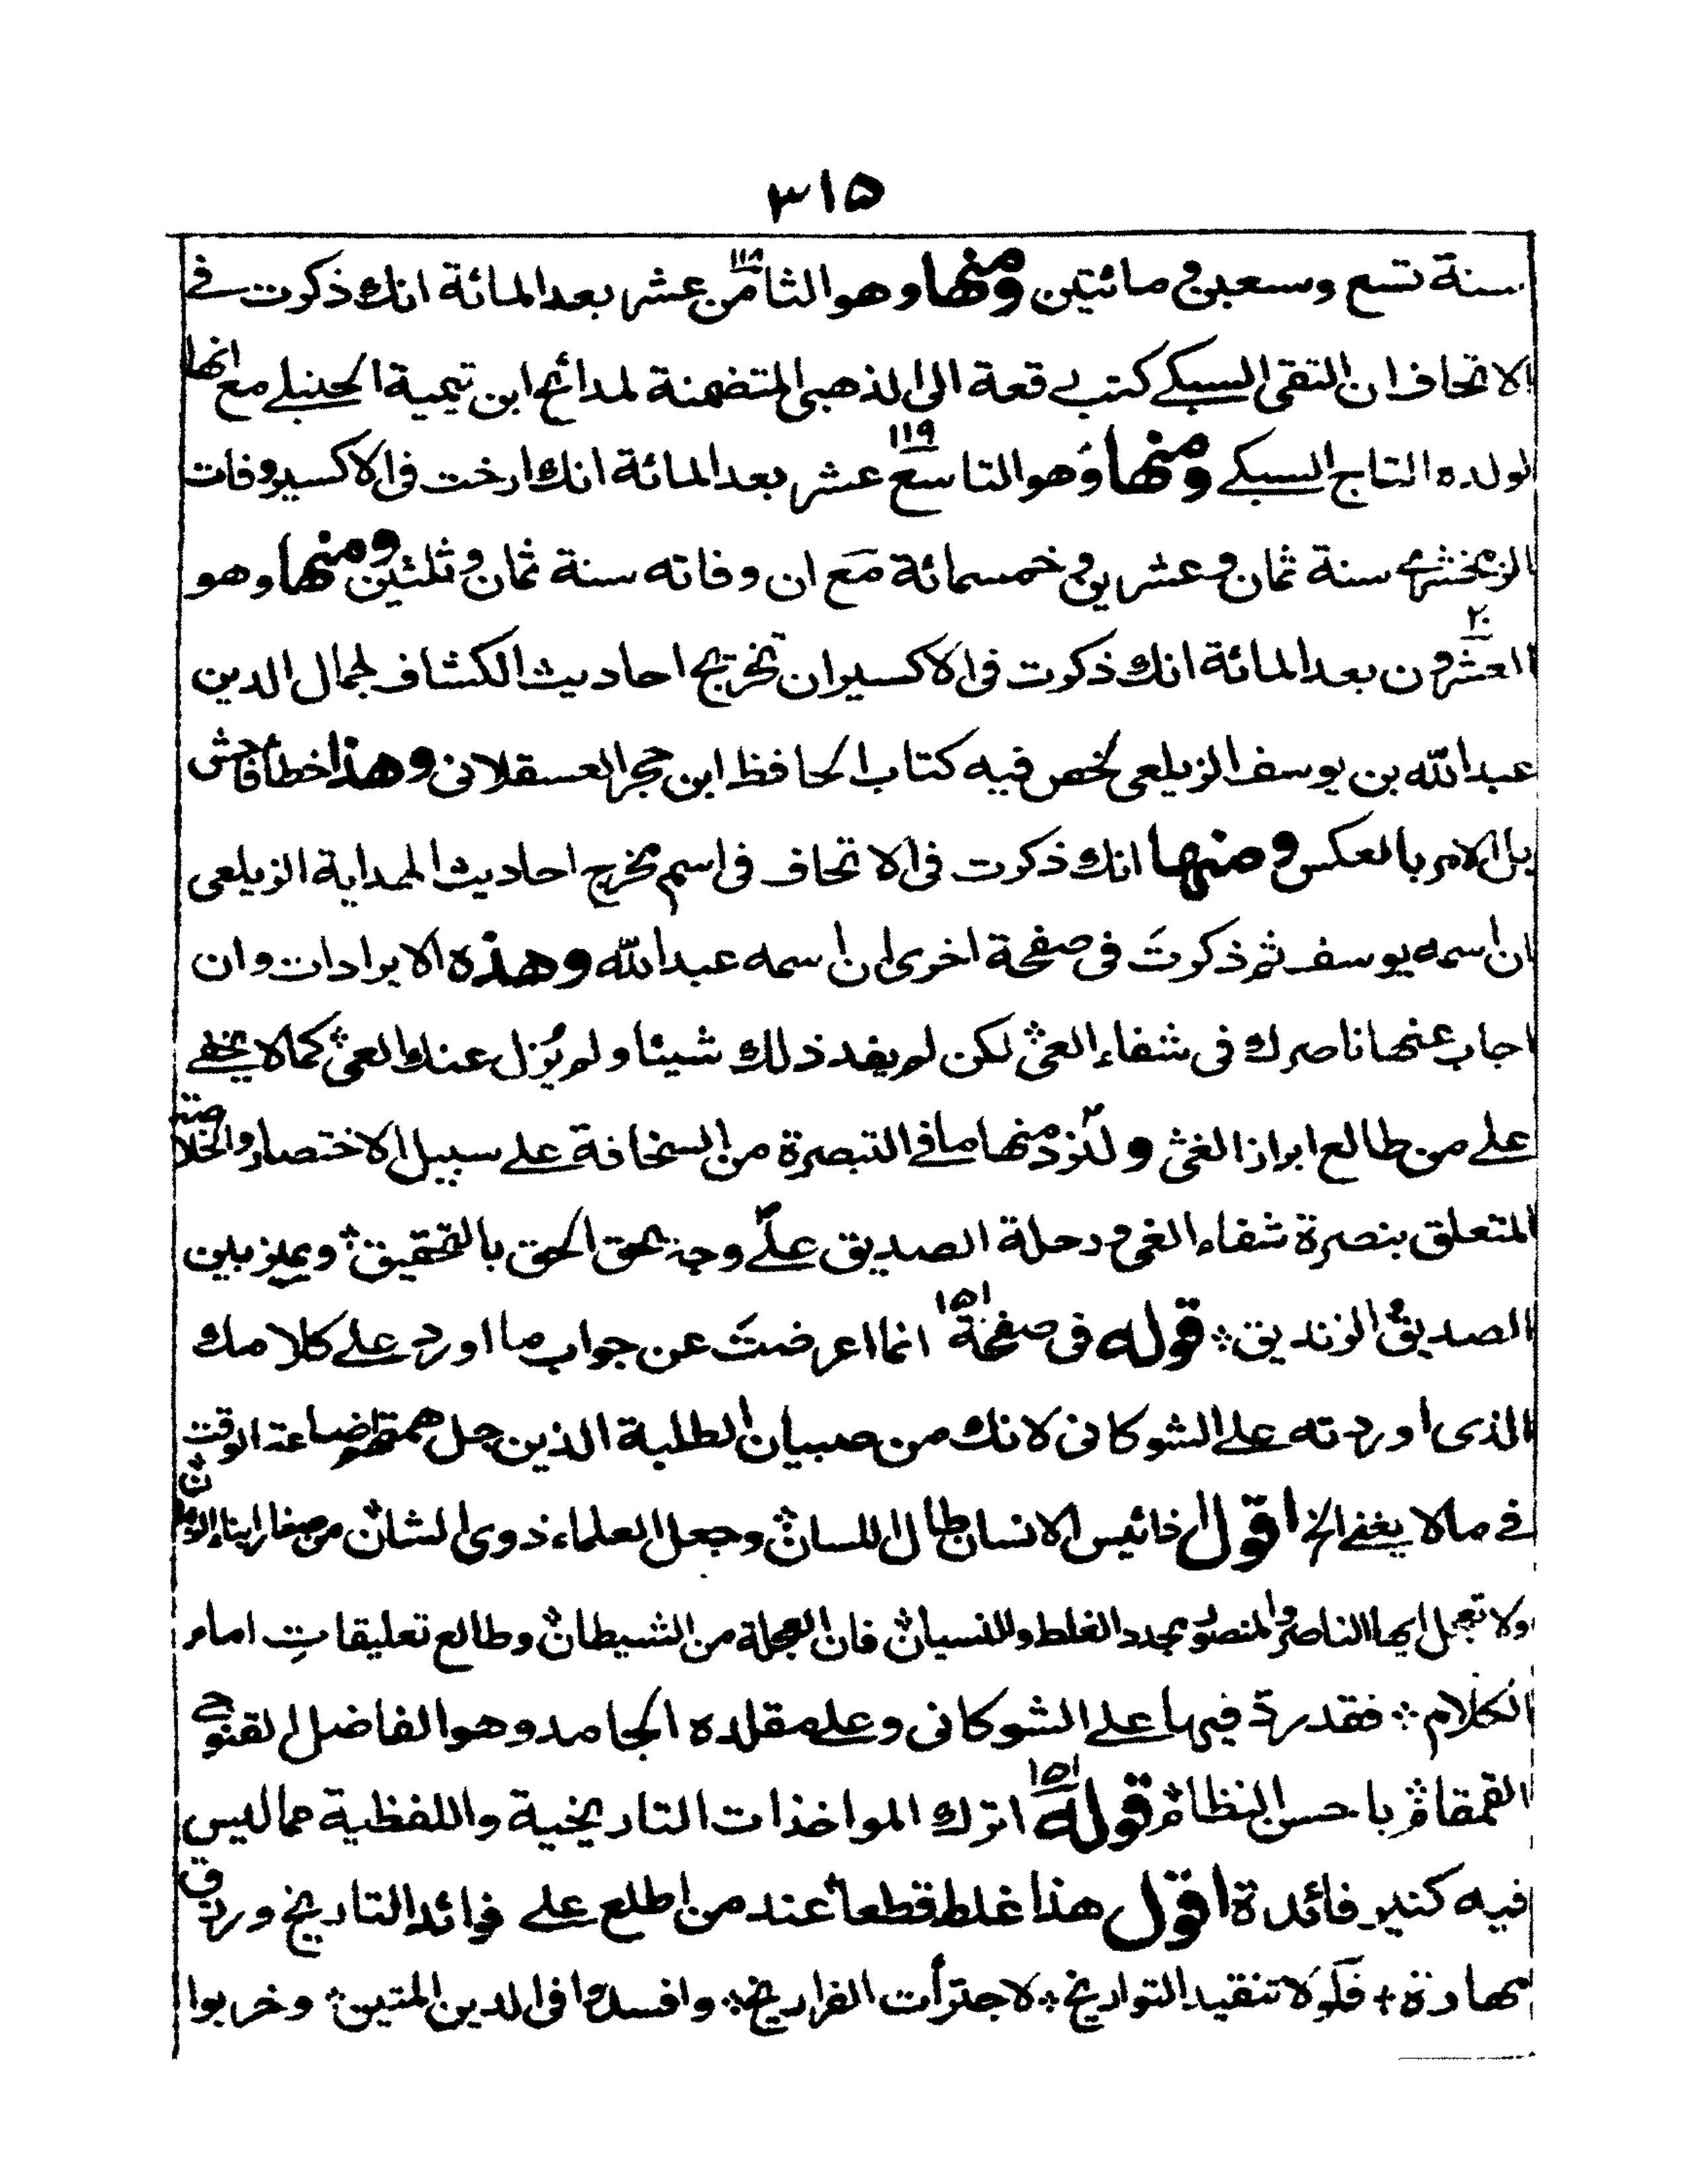 ٣١٥
سنة تسع وسعبين ومائتين ومنها وهو الثامن عشر بعد المائة انك ذكرت في
١١٨
الاتحاف ان التقى السبكے كتب رقعة الى الذهبى المتضمنة لمدائح ابن تيمية الحنبلے مع انها
لولده التاج السبكے ومنها وهو التاسع عشر بعد المائة انك ارخت فى الاكسير وفات
١١٩
الزمخشرے سنة ثمان وعشرين وخمسمائة مع ان وفاته سنة ثمان وثلثين ومنها وهو
٢٠
العشرون بعد المائة انك ذكرت فى الاكسير ان تخريج احاديث الكشاف لجمال الدين
عبد الله بن يوسف الزيلعى لخص فيه كتاب الحافظ ابن حجر العسقلانى وهذا خطأ فاحش
بل الامر بالعكس ومنها انك ذكرت فى الاتحاف فى اسم مخرج احاديث الهداية الزيلعى
ان اسمه يوسف ثم ذكرتَ فى صفحة اخرى ان اسمه عبد الله وهذه الايرادات وان
اجاب عنها ناصرك فى شفاء العى لكن لم يفد ذلك شيئا ولم يُزل عنك العى كما لا يخفے
علے من طالع ابراز الغى ولنرد منها ما فى التبصرة من السخافة علے سبيل الاختصار والخلاصة
المتعلق بنصرة شفاء الغى ورحلة الصديق علے وجه يحق الحق بالتحقيق ويميز بين
الصديق والزنديق قوله فى صفحة ١٥١ انما اعرضتَ عن جواب ما اورد علے كلامك
الذى اوردته علے الشوكانى لانك من صبيان الطلبة الذين جل همتهم اضاعة الوقت
فے ما لا يغنے الخ اقول اخائيس الانسان طال اللسان وجعل العلماء ذوى الشان من صغار ابناء الزمان
ولا تعجل ايها الناصر والمنصور بجدد الغلط والنسيان فان العجلة من الشيطان وطالع تعليقاتِ امام
الكلام فقد ردّ فيها علے الشوكانى وعلے مقلده الجامد وهو الفاضل القنوجے
القمقام باحسن النظام قوله ١٥١ اترك المواخذات التاريخية واللفظية مما ليس
فيه كثير فائدة اقول هذا غلط قطعا عند من اطلع علے فوائد التاريخ ورزق
بها رزة + فلولا تنقيد التواريخ لاجترأت الفراريخ وافسدوا فى الدين المتين وخربوا